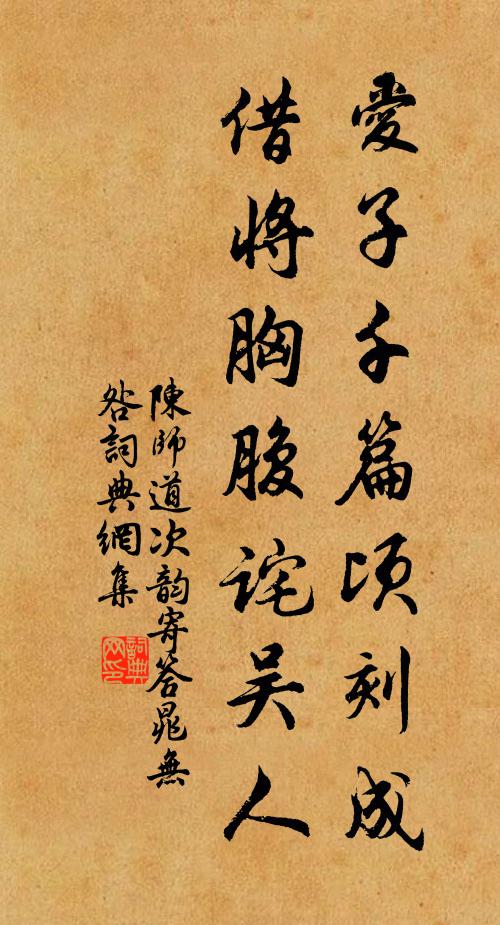 愛子千篇頃刻成
借將胸腹詫吳人
陳師道次韵寄答晁無
咎詞典網集
詞典
网印